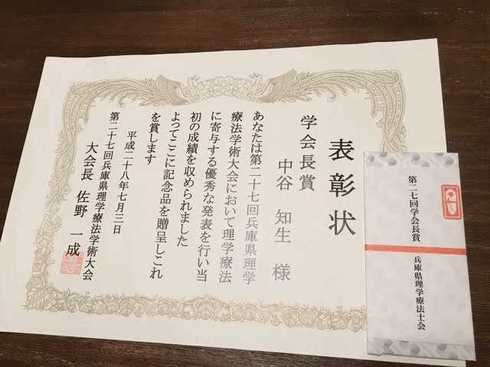 表彰状
学会長賞
中谷 知生 様
あなたは第二十七回兵庫県理学
療法学術大会において理学療法
に寄与する優秀な発表を行い当
初の成績を収められました
よってここに記念品を贈呈しこれ
を賞します
平成二十八年七月三日
第二十七回兵庫県理学療法学術大会
大会長 佐野 一成
第二七回学会長賞
兵庫県理学療法士会